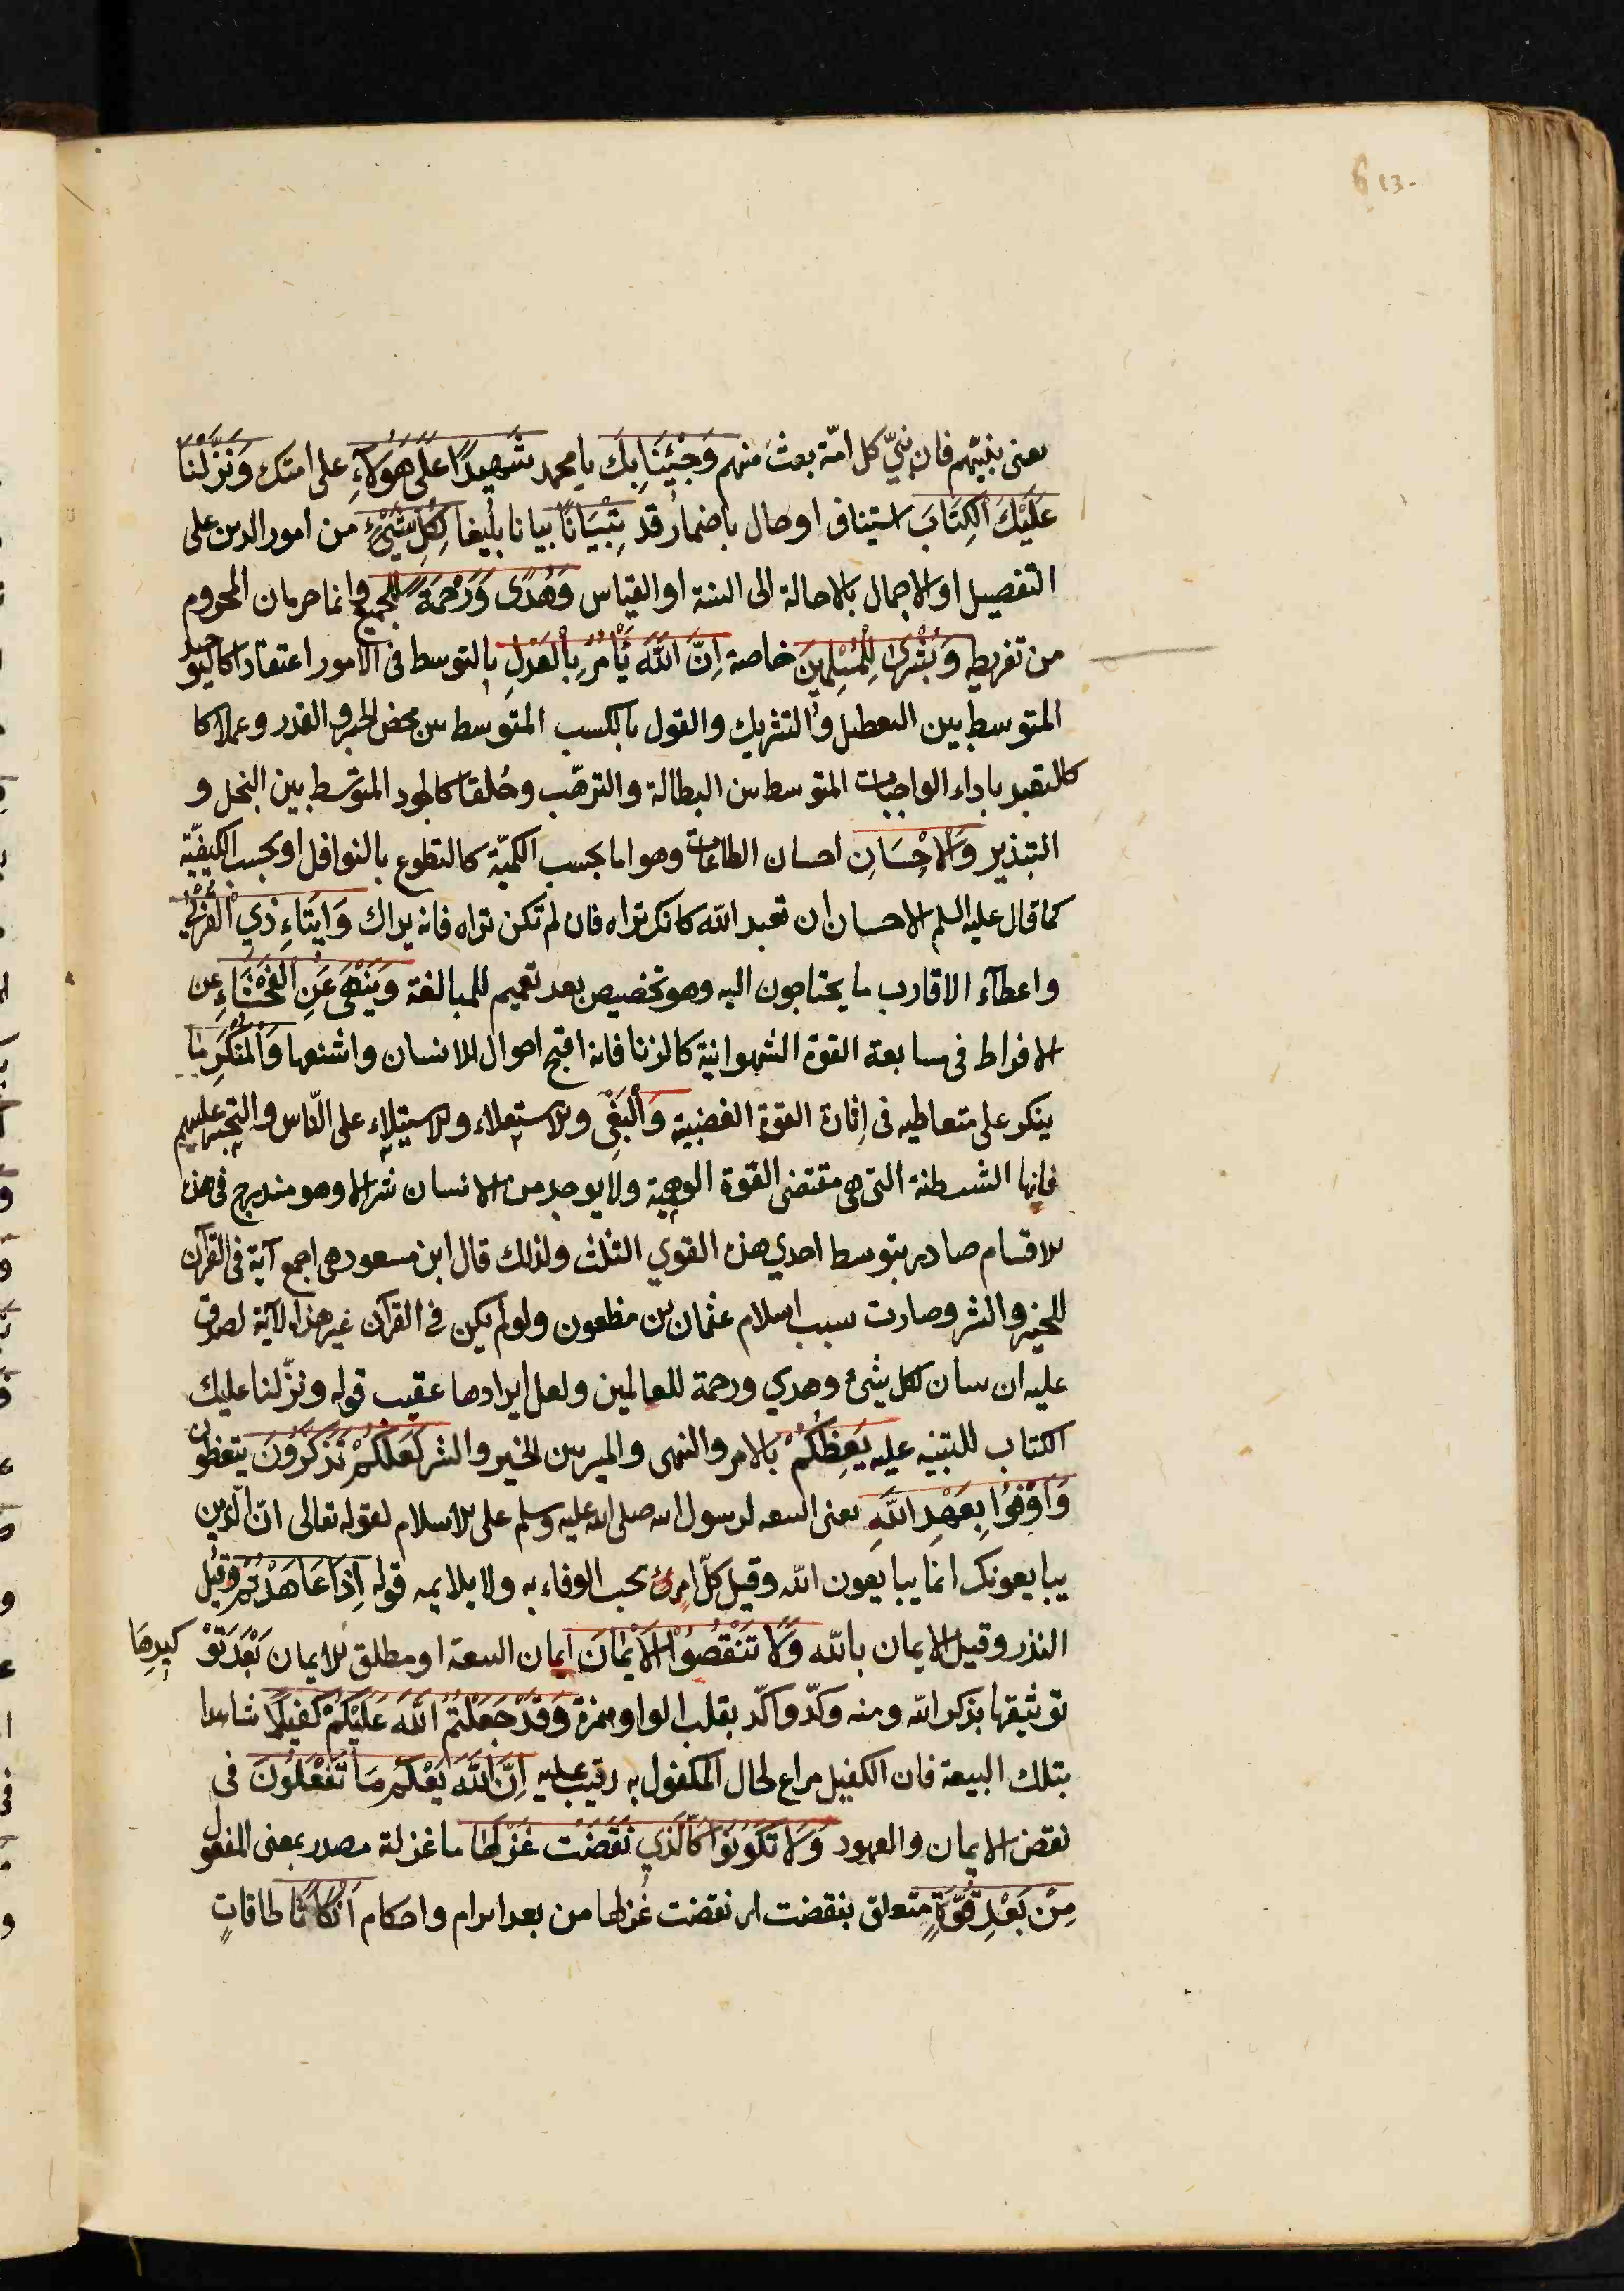 613-
يعنى بنبيّهم فان نبىّ كل امّة بعث منهم وَجِئْنَا بِكَ يا محمد شَهِيدًا عَلَى هَؤُلَآءِ على امتك وَنَزَّلْنَا
عَلَيْكَ الْكِتَابَ استيناف او حال باضمار قد تِبْيَانًا بيانا بليغا لِكُلِّ شَيْئٍ من امور الدين على
التفصيل او الاجمال بالاحالة الى السنة او القياس وَهُدًى وَرَحْمَةً للجميع وانما حرمان المحروم
من تفريطه وَبُشْرَى لِلْمُسْلِمِينَ خاصة اِنَّ اللَّهَ يَأْمُرُ بِالْعَدْلِ بالتوسط فى الامور اعتقادا كالتوحيد
المتوسط بين التعطيل والتشريك والقول بالكسب المتوسط بين محض الجبر والقدر وعملا كا
كالتعبد باداء الواجبات المتوسط بين البطالة والترهّب وخُلقا كالجود المتوسّط بين البخل و
التبذير وَالْاِحْسَانِ احسان الطاعات وهو اما بحسب الكميّة كالتطوع بالنوافل او بحسب الكيفيّة
كما قال عليه السلم الاحسان ان تعبد الله كانك تراه فان لم تكن تراه فانه يراك وَاِيتَاءِ ذِي الْقُرْبَى
واعطآء الاقارب ما يحتاجون اليه وهو تخصيص بعد تعميم للمبالغة وَيَنْهَى عَنِ الْفَحْشَاءِ عن
الافراط فى متابعة القوة الشهوانية كالزنا فانه اقبح احوال الانسان واشنعها وَالْمُنْكَرِ ما
ينكر على متعاطيه فى اثارة القوة الغضبية وَالْبَغْىِ والاستعلاء والاستيلاء على النّاس والتجبر عليهم
فانها الشيطنة التى هى مقتضى القوة الوهمية ولا يوجد من الانسان شر الا وهو مندرج فى هذه
الاقسام صادر بتوسط احدي هذه القوي الثلث ولذلك قال ابن مسعود هى اجمع آية فى القرآن
للخير والشر وصارت سبب اسلام عثمان بن مظعون ولو لم يكن فى القرآن غير هذه الآية لصدق
عليه ان تبيان لكل شئ وهدي ورحمة للعالمين ولعل ايرادها عقيب قوله ونزّلنا عليك
الكتاب للتنبيه عليه يَعِظُكُمْ بالامر والنهى والميز بين الخير والشر لَعَلَّكُمْ تَذَكَّرُونَ يتعظون
وَاَوْفُوا بِعَهْدِ اللَّهِ يعنى البيعة لرسول الله صلى الله عليه وسلم على الاسلام لقوله تعالى انّ الّذين
يبايعونك انما يبايعون الله وقيل كلّ امرئ يجب الوفاء به ولا يلايمه قوله اِذَا عَاهَدْتُمْ وقيل
النذر وقيل الايمان بالله وَلَا تَنْقُضُوا الْاَيْمَانَ ايمان البيعة او مطلق الايمان بَعْدَ تَوْكِيدِهَا
توثيقها بذكر الله ومنه وكدّ واكّد بقلب الواو همزة وَقَدْ جَعَلْتُمُ اللَّهَ عَلَيْكُمْ كَفِيلًا شاهدا
بتلك البيعة فان الكفيل مراع لحال المكفول به رقيب عليه اِنَّ اللَّهَ يَعْلَمُ مَا تَفْعَلُونَ فى
نقض الايمان والعهود وَلَا تَكُونُوا كَالَّذِي نَقَضَتْ غَزْلَهَا ما غزلة مصدر بمعنى المفعول
مِنْ بَعْدِ قُوَّةٍ متعلق بنقضت اى نقضت غزلها من بعد ابرام واحكام اَنْكَاثًا طاقاتٍ